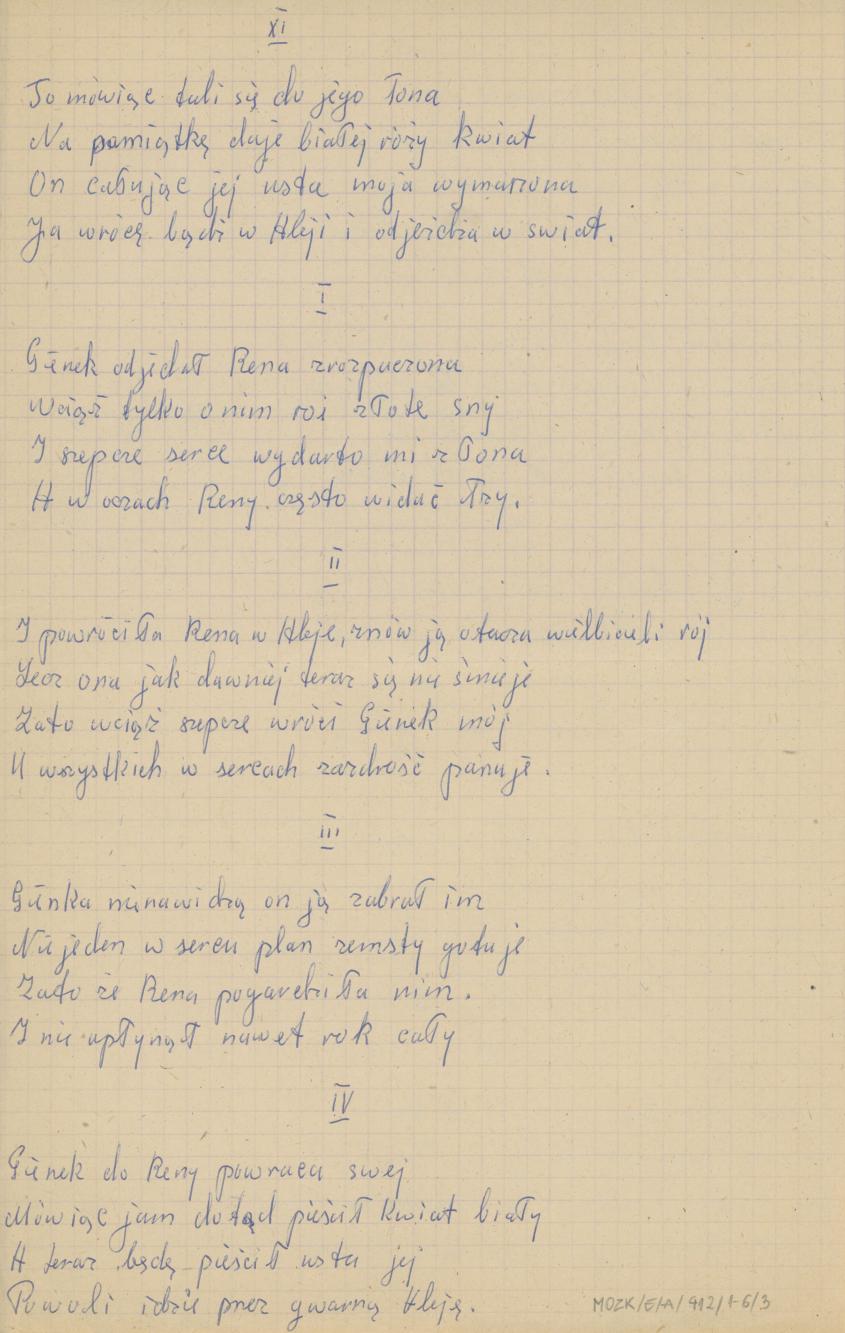 XI
To mówiąc tuli się do jego łona
Na pamiątkę daje białej róży kwiat
On całując jej usta moja wymarzona
Ja wrócę bądź w Aleji i odjeżdża w swiat.
I
Gienek odjechał Rena zrozpaczona
Wciąż tylko o nim roi złote sny
I szepcze serce wydarto mi z łona
A w oczach Reny często widać łzy.
II
I powróciła Rena w Aleje, znów ją otacza wielbicieli rój
Lecz ona jak dawniej teraz się nie śmieje
Zato wciąż szepcze wróci Gienek mój
U wszystkich w sercach zazdrość panuje.
III
Gienka nienawidzą on ją zabrał im
Nie jeden w sercu plan zemsty gotuje
Zato że Rena pogardziła nim.
I nie upłynął nawet rok cały
IV
Gienek do Reny powraca swej
Mówiąc jam dotąd pieścił kwiat biały
A teraz będę pieścił usta jej
Powoli idzie przez gwarną Aleję.
MOZK/E/A/912/1-6/3